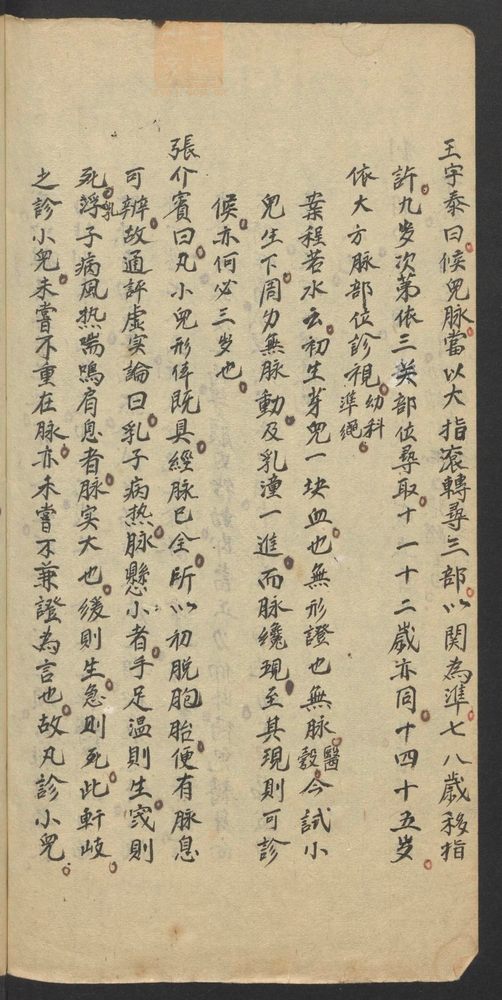 王宇泰曰候兒脉當以大指滾轉尋三部以関為準七八歲移指
許九岁次第依三关部位尋取十一十二歲亦同十四十五岁
依大方脉部位診視幼科準繩
案程若水云初生芽兒一块血也無形證也無脉醫彀今試小
兒生下周身無脉動及乳潼一進而脉纔現至其現則可診
候亦何必三岁也
張介賓曰凡小兒形体既具經脉已全所以初脱胞胎便有脉息
可辨故通評虚实論曰乳子病热脉懸小者手足温則生寒則
死乳子病風热喘鳴肩息者脉实大也緩則生急則死此軒岐
之診小兒未嘗不重在脉亦未嘗不兼證為言也故凡診小兒